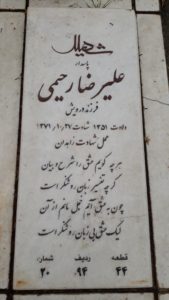 شهید
پاسدار
علیرضا رحیمی
فرزند درویش
ولادت ۱۳۵۱ شهادت ۱۳۷۱/۱۰/۲۷
محل شهادت زاهدان
هرچه گویم عشق را شرح و بیان
گرچه تفسیر زبان روشنگر است
چون به عشق آیم خجل مانم از آن
لیک عشق بی زبان روشنتر است
قطعه ردیف شماره
۴۴ ۹۴ ۲۰